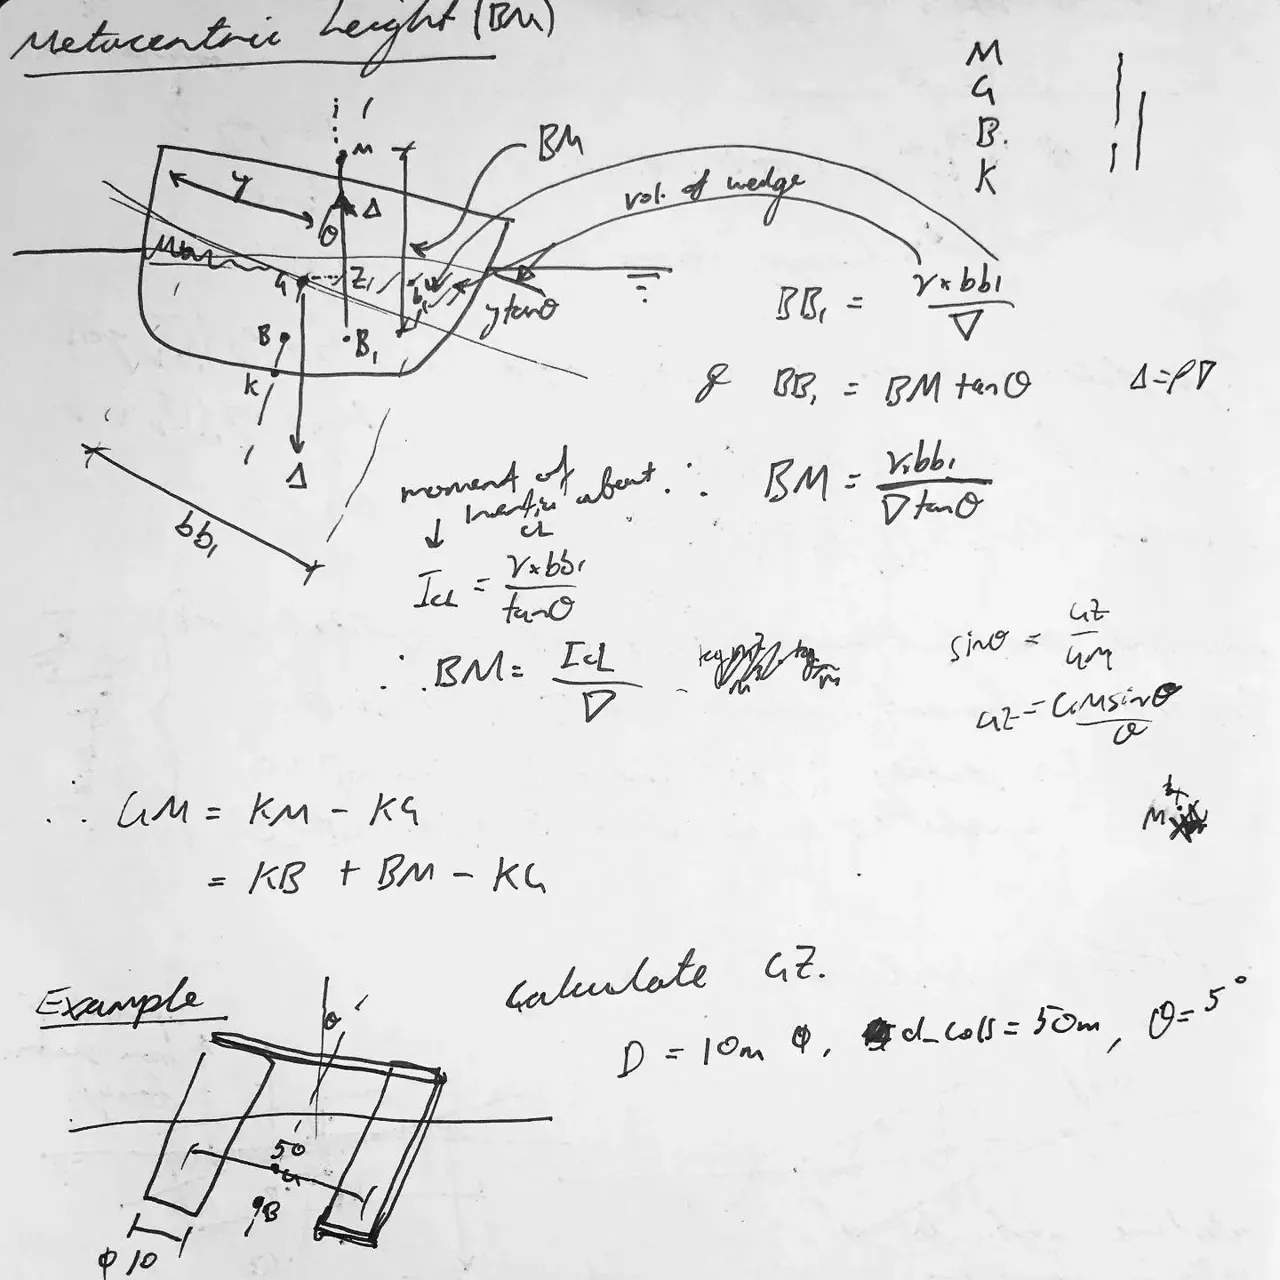 Metacentric height (BM)
M
G
B.
K
BM
vol. of wedge
M
y
Δ
θ
G
Z₁
b₁
y tanθ
B
B₁
K
Δ
bb₁
BB₁ = v × bb₁ / ∇
& BB₁ = BM tanθ
Δ = ρ∇
∴ BM = v × bb₁ / ∇ tanθ
moment of
Inertia about
CL
↓
I_CL = v × bb₁ / tanθ
∴ BM = I_CL / ∇
sinθ = GZ / GM
GZ = GM sinθ / θ
M
∴ GM = KM - KG
= KB + BM - KG
Example
Calculate GZ.
D = 10m φ, d_cols = 50m, θ = 5°
θ
50
G
B
φ 10